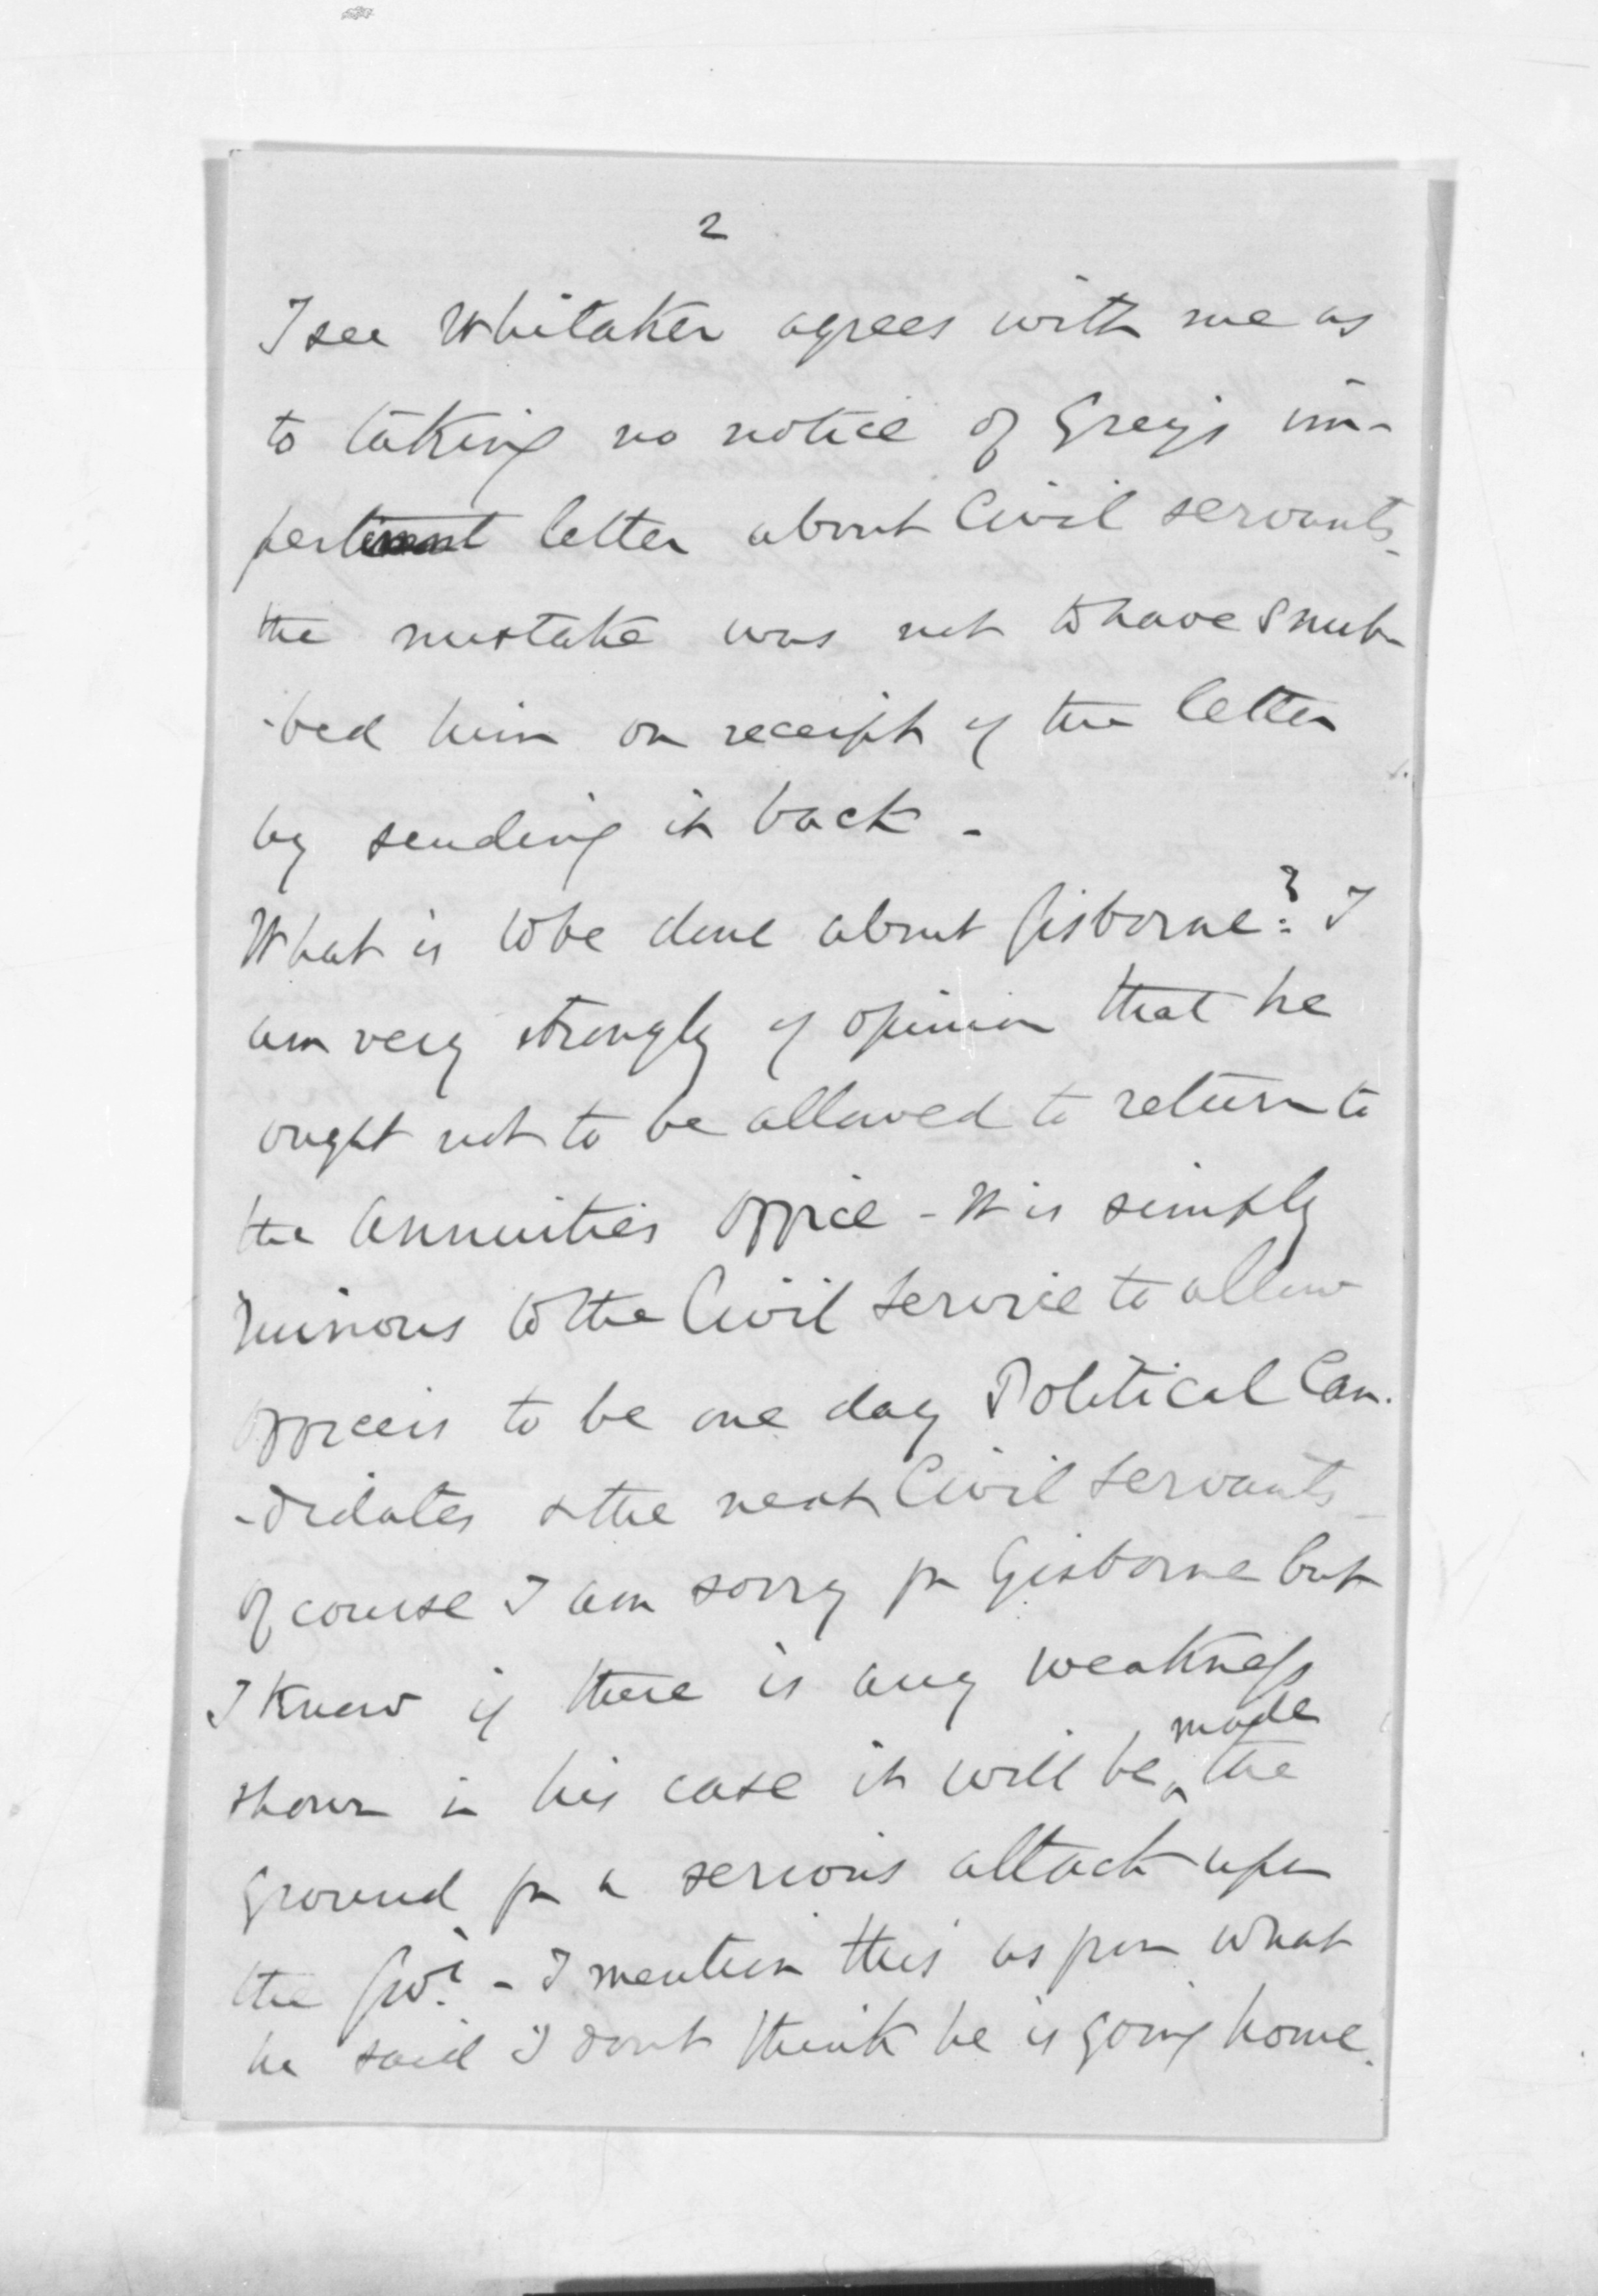 2
I see Whitaker agrees with me as
to taking no notice of Grey's im-
pertinent letter about Civil servants -
the mistake was not to have snub-
-bed him on receipt of the letter
by sending it back -
What is to be done about Gisborne? I
am very strongly of opinion that he
ought not to be allowed to return to
the Annuities Office - It is simply
ruinous to the Civil Service to allow
officers to be one day Political Can-
-didates & the next Civil Servants -
Of course I am sorry for Gisborne but
I know if there is any weakness
made
shown in his case it will be ^ the
ground for a serious attack upon
the Govt. - I mention this as from what
he said I dont think he is going home.